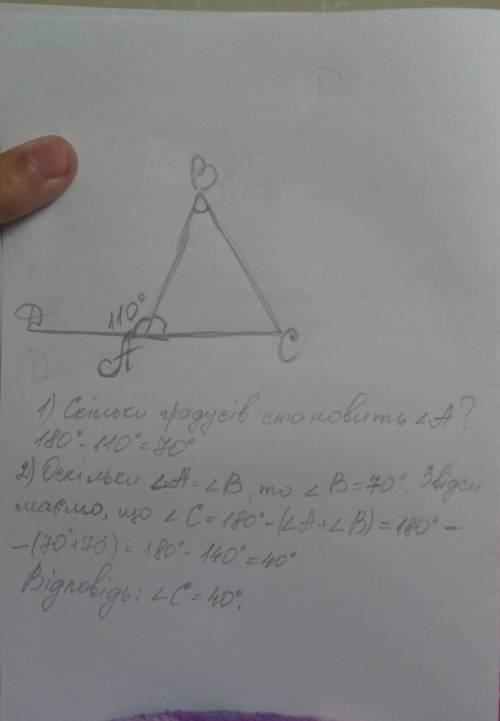 B
D
110°
A
C
1) Скільки градусів становить ∠A?
180°-110°=70°
2) Оскільки ∠A=∠B, то ∠B=70°. Звідси
маємо, що ∠C=180°-(∠A+∠B)=180°-
-(70°+70°)=180°-140°=40°
Відповідь: ∠C=40°.